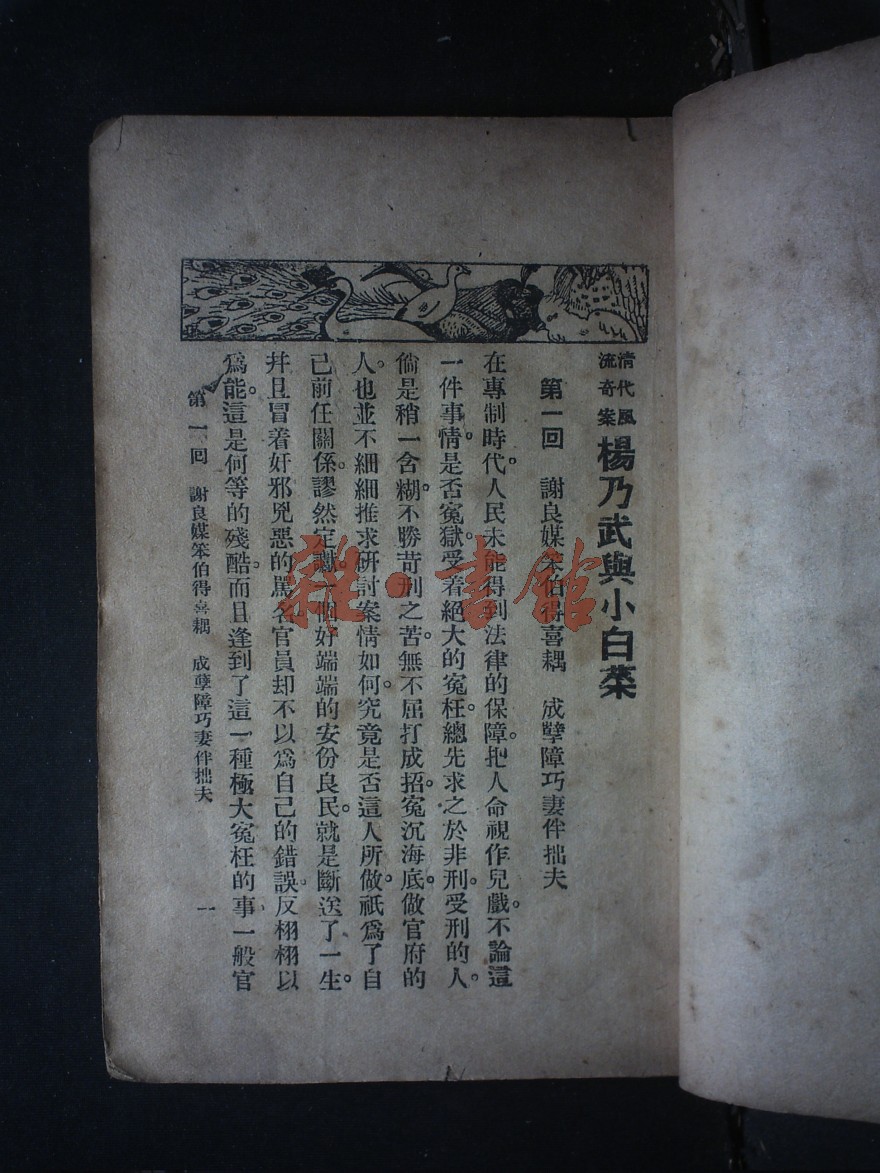 清代風
流奇案
楊乃武與小白菜
第一回　謝良媒笨伯得喜耦　成孽障巧妻伴拙夫
在專制時代。人民未能得到法律的保障。把人命視作兒戲。不論這
一件事情。是否冤獄。受着絕大的冤枉。總先求之於非刑。受刑的人。
倘是稍一含糊。不勝苛刑之苦。無不屈打成招。冤沉海底。做官府的
人。也並不細細推求研討案情如何。究竟是否這人所做。祇爲了自
己前任關係。謬然定讞。一個好端端的安份良民。就是斷送了一生。
幷且冒着奸邪兇惡的罵名。官員却不以爲自己的錯誤。反栩栩以
爲能。這是何等的殘酷。而且逢到了這一種極大冤枉的事。一般官
第一回　謝良媒笨伯得喜耦　成孽障巧妻伴拙夫
一
雜·書館